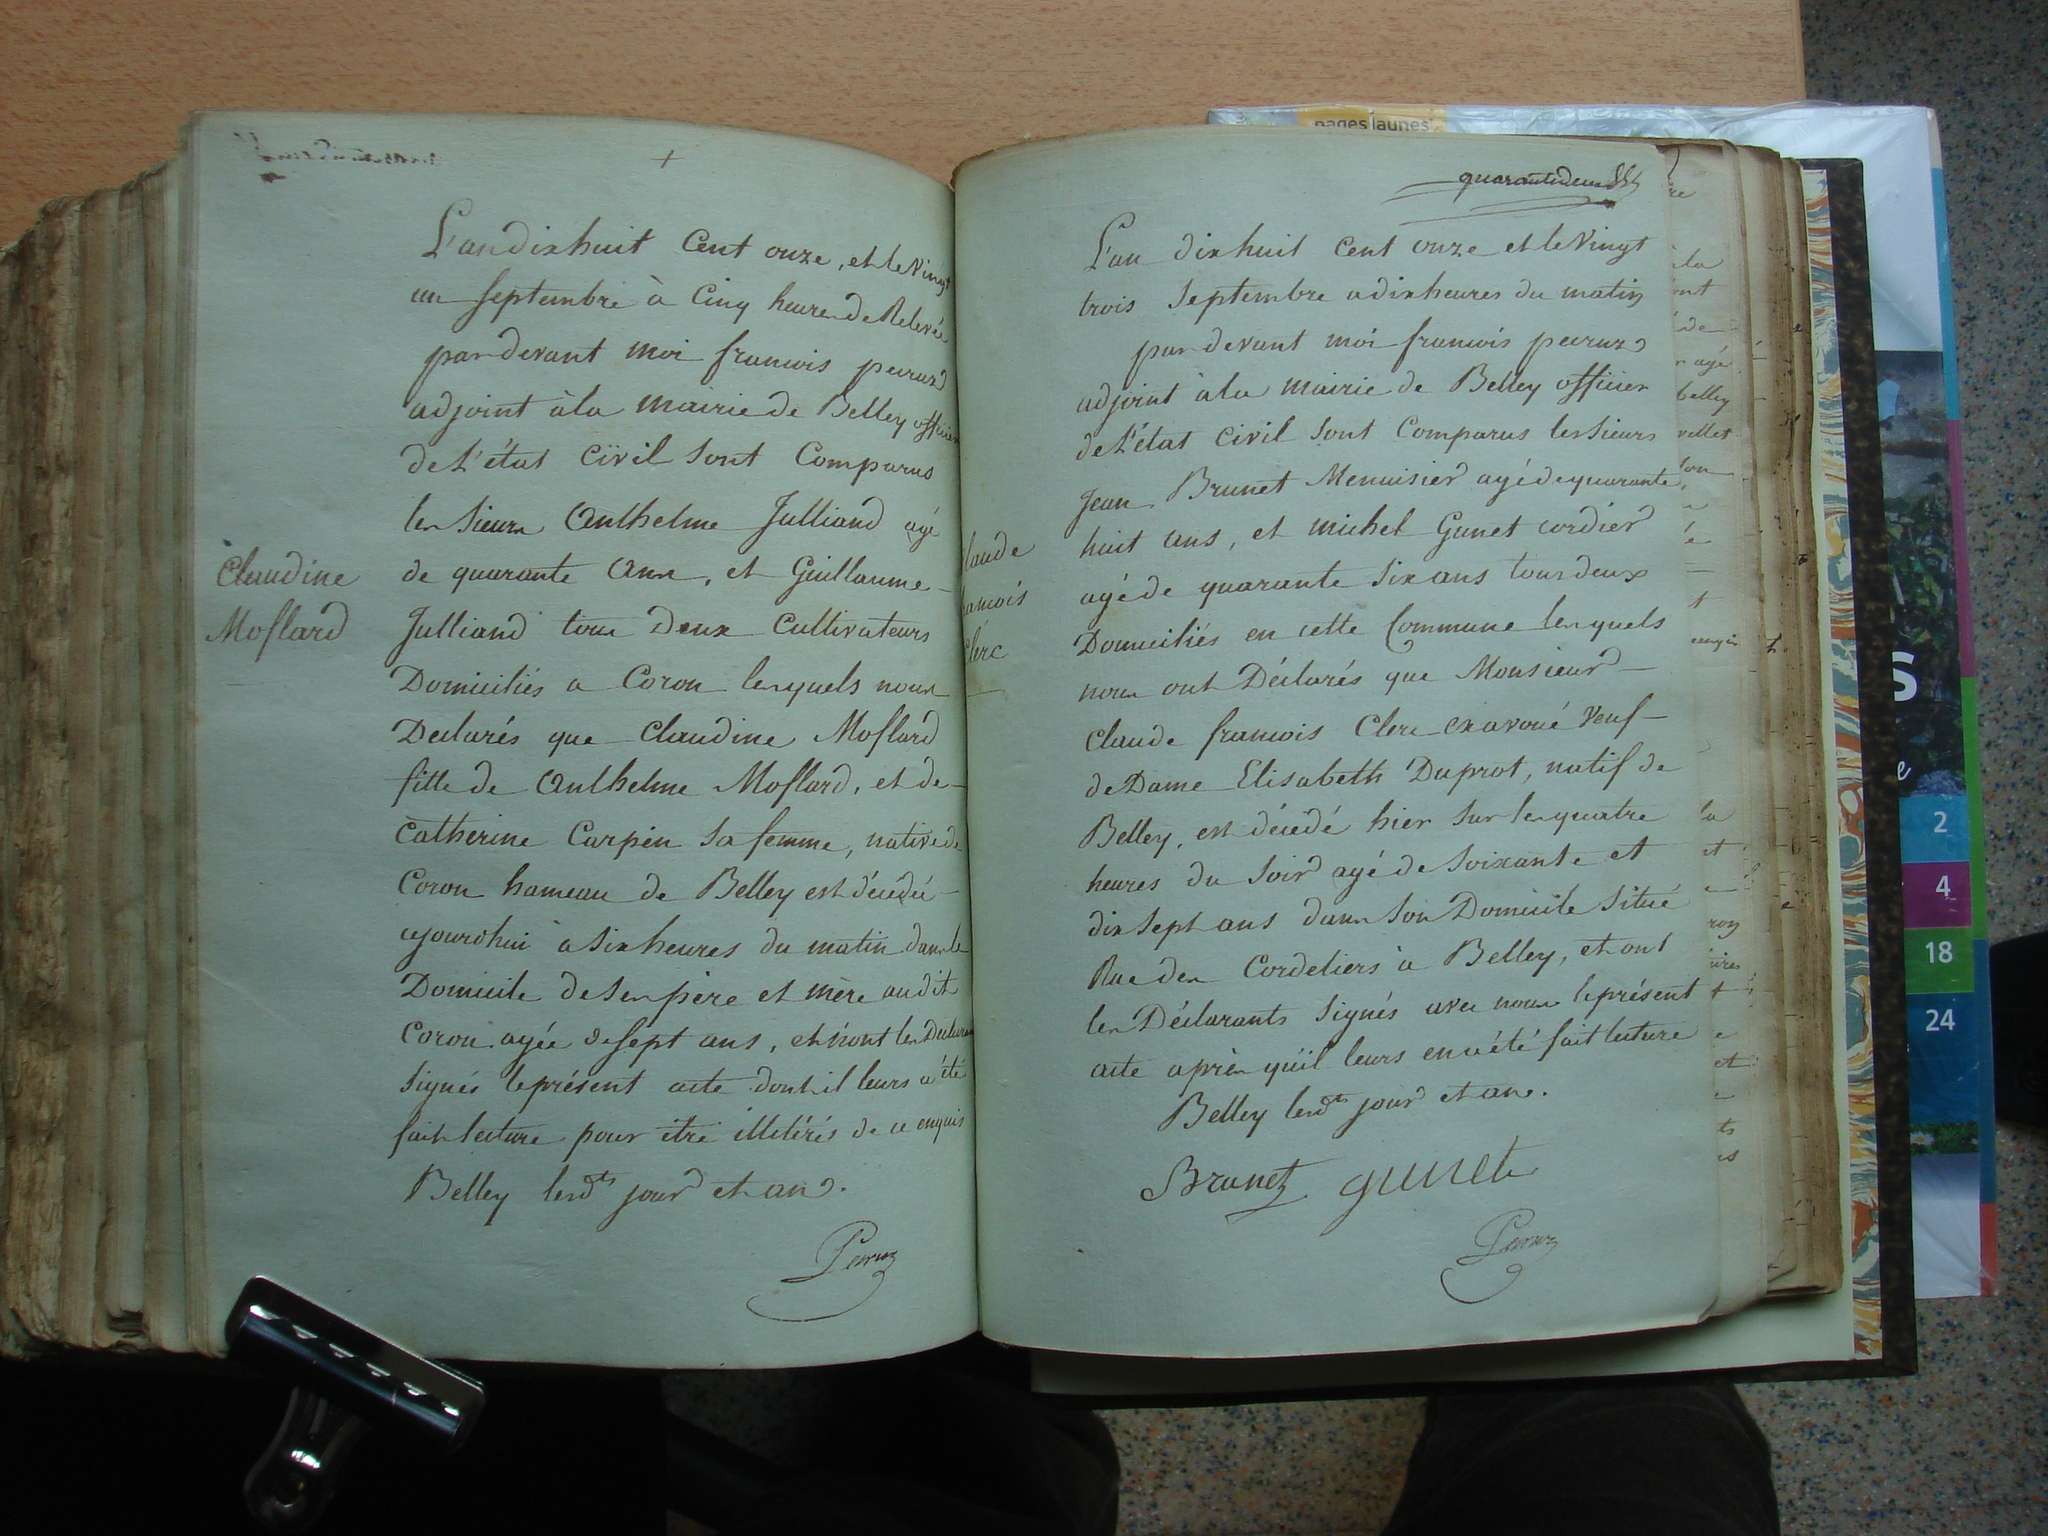 Claudine
Moflard
L'an dix huit Cent onze, et le vingt
un Septembre à Cinq heures de Relevée
par devant moi francois peruz
adjoint à la Mairie de Belley officier
de L'état civil Sont Comparus
les Sieurs Anthelme Julliand agé
de quarante Ans, et Guillaume
Julliand tous Deux Cultivateurs
Domiciliés a Coron lesquels nous
Declarés que Claudine Moflard
fille de Anthelme Moflard, et de
Catherine Carpin Sa femme, native de
Coron hameau de Belley est décédé
ajourdhui à Six heures du matin dans le
Domicile de Ses père et mère audit
Coron agée de Sept ans, et n'ont les Declarans
Signés le présent acte dont il leurs a été
fait lecture pour être illitérés de ce enquis
Belley les dts jour et an.
Peruz
quarante deux
Claude
francois
Clerc
L'an dix huit Cent onze et le Vingt
trois Septembre a dix heures du matin
par devant moi francois peruz
adjoint à la Mairie de Belley officier
de L'état Civil Sont Comparus les Sieurs
Jean Brunet Menuisier agé de quarante
huit ans, et Michel Gunet cordier
agé de quarante Six ans tous deux
Domiciliés en cette Commune lesquels
nous ont Déclarés que Monsieur
Claude francois Clerc exavoué Veuf
de Dame Elisabeth Duprot, natif de
Belley, est décédé hier Sur les quatre
heures du Soir agé de Soixante et
dix Sept ans dans Son Domicile Situé
Rue des Cordeliers à Belley, et ont
les Déclarants Signés avec nous le présent
acte après qu'il leurs en a été fait lecture
Belley les dts jour et an.
Brunet gunet
Peruz
pages jaunes
2
4
18
24